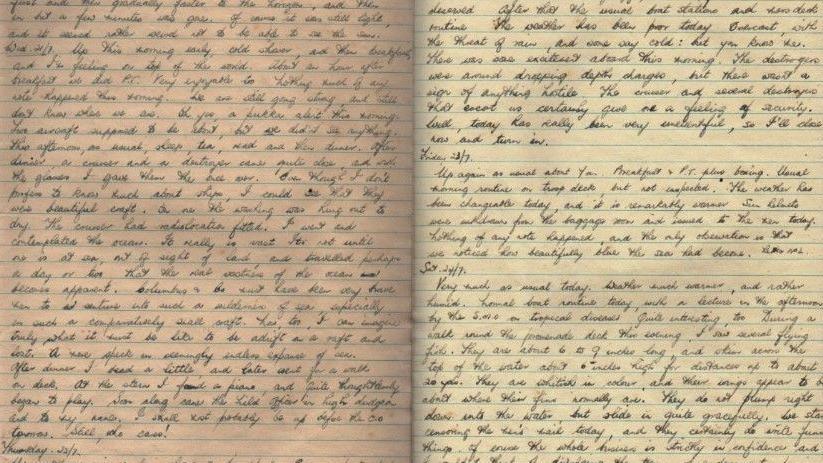 first and then gradually faster to the horizon, and then
in but a few minutes was gone. Of course it was still light
and it seemed rather weird not to be able to see the sun.
Wed. 21/7. Up this morning early, cold shower, and then breakfast,
and I'm feeling on top of the world. About an hour after
breakfast we did P.T. Very enjoyable too. Nothing much of any
note happened this morning. We are still going strong and still
don't know where we are. Oh yes, a pukka alert this morning.
Two aircraft supposed to be about, but we didn't see anything.
This afternoon, as usual, sleep, tea, read and then dinner. After
dinner, a cruiser and a destroyer came quite close, and with
the glasses I gave them the once over. Even though I don't
profess to know much about ships, I could see that they
were beautiful craft. On one the washing was hung out to
dry. The cruiser had radiolocation fitted. I went and
contemplated the ocean. It really is vast. It's not until
one is at sea, out of sight of land and travelled perhaps
a day or two that the real vastness of the ocean
becomes apparent. Columbus & Co must have been very brave
men to venture into such a wilderness of sea, especially
in such a comparatively small craft. Yes, too, I can imagine
truly what it must be like to be adrift on a raft and
lost. A mere speck in seemingly endless expanse of sea.
After dinner I read a little and later went for a walk
on deck. At the stern I found a piano and quite thoughtlessly
began to play. Soon along came the Field Officer in high dudgeon
and took my name. I shall most probably be up before the C.O
tomorrow. Still who cares!
Thursday. 22/7.
deserved. After that the usual boat stations and mess deck
routine. The weather has been poor today. Overcast, with
the threat of rain, and some say cold: but you know me.
There was some excitement aboard this morning. The destroyers
were around dropping depth charges, but there wasn't a
sign of anything hostile. The cruiser and several destroyers
that escort us certainly give me a feeling of security.
Well, today has really been very uneventful, so I'll close
now and turn in.
Friday 23/7.
Up again as usual about 7am. Breakfast & P.T. plus boxing. Usual
morning routine on troop deck but not inspected. The weather has
been changeable today, and it is remarkably warmer. Sun helmets
were withdrawn from the baggage room and issued to the men today.
Nothing of any note happened, and the only observation is that
we noticed how beautifully blue the sea had become.
Sat. 24/7.
Very much as usual today. Weather much warmer, and rather
humid. Normal boat routine today with a lecture in the afternoon
by the S.M.O on tropical diseases. Quite interesting too. During a
walk round the promenade deck this evening I saw several flying
fish. They are about 6 to 9 inches long, and skim across the
top of the water about 6 inches high for distances up to about
20 yds. They are whitish in colour, and their wings appear to be
about where their fins normally are. They do not plump right
down into the water but slide in quite gracefully. We start
censoring the men's mail today, and they certainly do write funny
things. Of course the whole business is strictly in confidence and